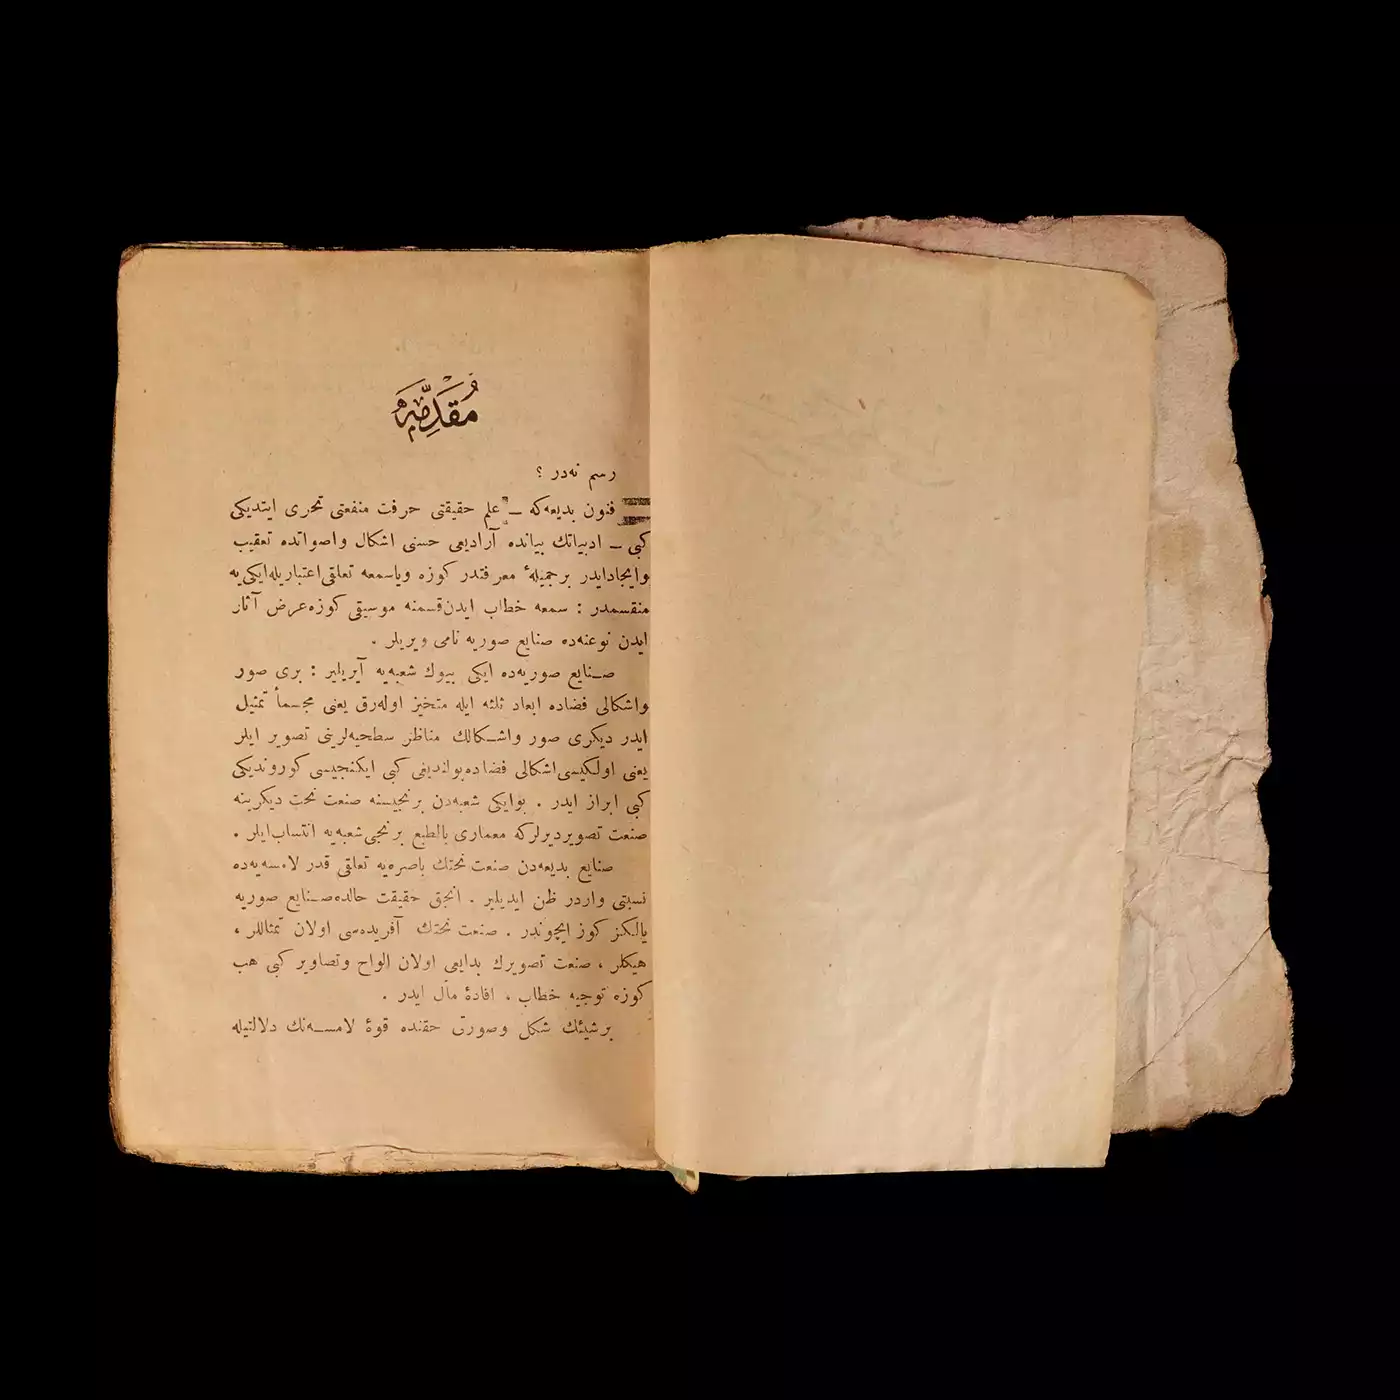 مُقَدِّمَه
رسم نه‌در ؟
فنون بدیعه‌که ـ علم حقیقتی حرفت منفعتی تحری ایتدیکی
کبی ـ ادبیاتك بیانده آرادیغی حسنی اشکال واصواتده تعقیب
وایجادایدر برجمیلهٔ معرفتدر کوزه ویاسمعه تعلقی‌اعتباریله‌ایکی‌یه
منقسمدر : سمعه خطاب ایدن‌قسمنه موسیقی کوزه‌عرض آثار
ایدن نوعنه‌ده صنایع صوریه نامی ویریلر .
صـنایع صوریه‌ده ایکی بیوك شعبه‌یه آیریلیر : بری صور
واشکالی فضاده ابعاد ثلثه ایله متحیز اوله‌رق یعنی مجسماً تمثیل
ایدر دیکری صور واشـکالك مناظر سطحیه‌لرینی تصویر ایلر
یعنی اولکیسی‌اشکالی فضاده‌بولندیغی کبی ایکنجیسی کوروندیکی
کبی ابراز ایدر . بوایکی شعبه‌دن برنجیسنه صنعت نحت دیکرینه
صنعت تصویردیرلرکه معماری بالطبع برنجی‌شعبه‌یه انتساب‌ایلر .
صنایع بدیعه‌دن صنعت نحتك باصره‌یه تعلقی قدر لامسه‌یه‌ده
نسبتی واردر ظن ایدیلیر . انجق حقیقت حالده‌صـنایع صوریه
یالـکز کوز ایچوندر . صنعت نحتك آفریده‌سی اولان تمثاللر ،
هیکلر ، صنعت تصویرك بدایعی اولان الواح وتصاویر کبی هب
کوزه توجیه خطاب ، افادهٔ مآل ایدر .
برشیئك شکل وصورتی حقنده قوهٔ لامسـه‌نك دلالتیله